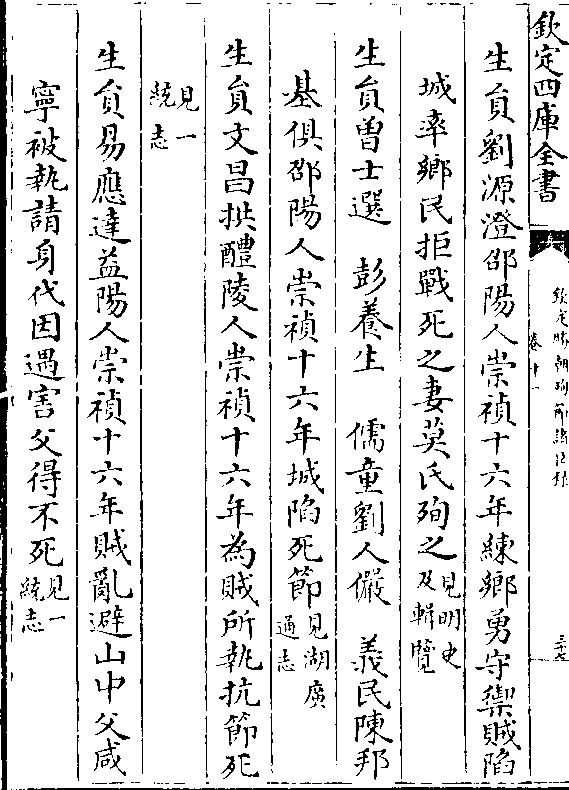 欽定四庫全書
欽定勝朝殉節諸臣錄
卷十一
三十七
生員劉源澄邵陽人崇禎十六年練鄉勇守禦賊陷
城率鄉民拒戰死之妻莫氏殉之見明史及輯覽
生員曾士選　彭養生　儒童劉人儼　義民陳邦
基俱邵陽人崇禎十六年城陷死節見湖廣通志
生員文昌拱醴陵人崇禎十六年為賊所執抗節死
見一統志
生員易應達益陽人崇禎十六年賊亂避山中父咸
寧被執請身代因遇害父得不死見一統志